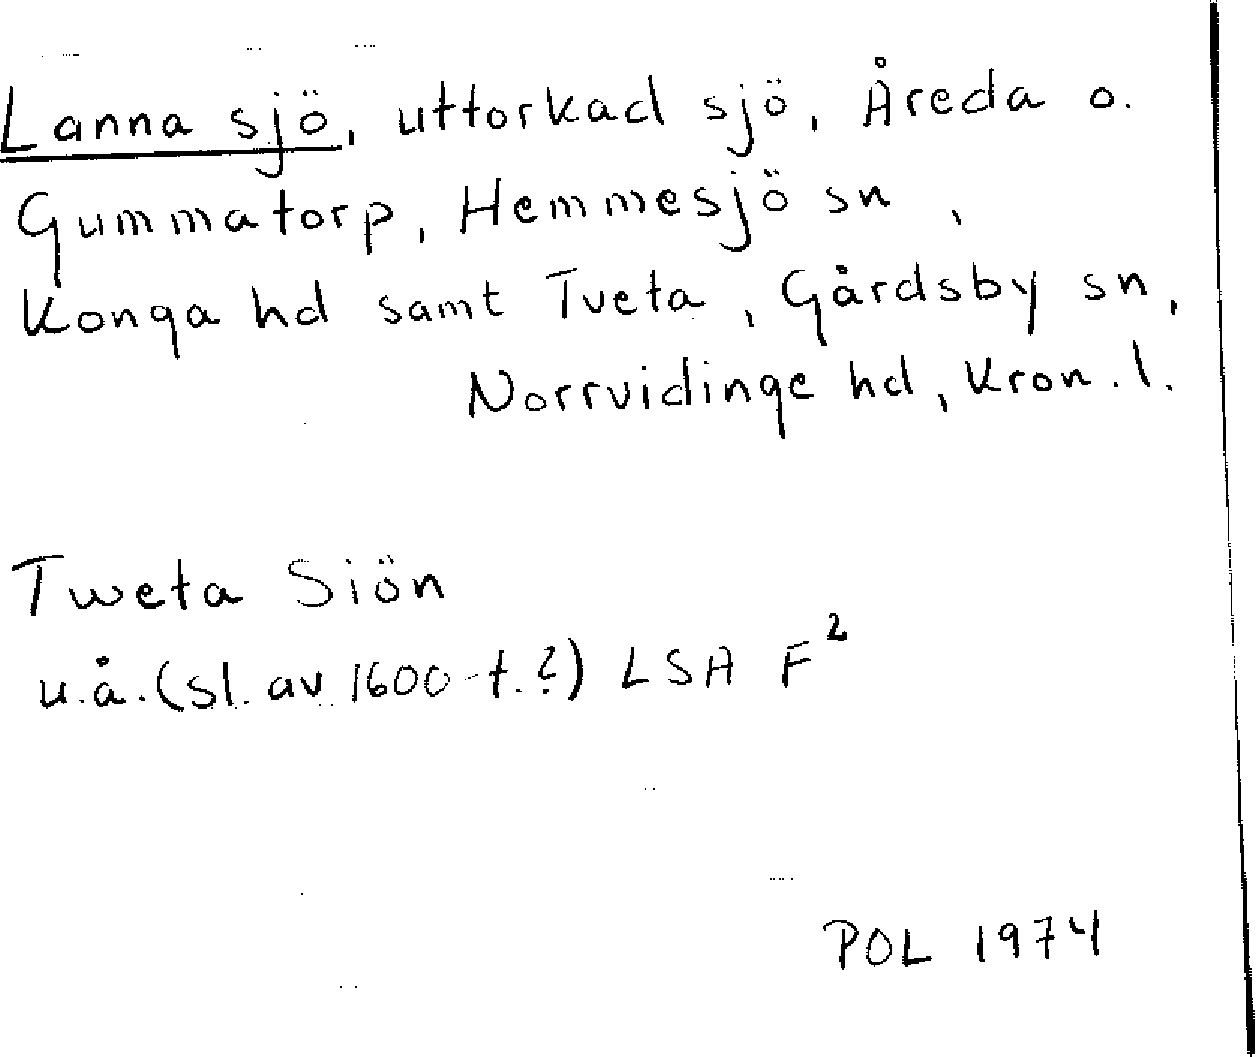 Lanna sjö, uttorkad sjö, Åreda o.
Gummatorp, Hemmesjö sn,
Konga hd samt Tveta, Gårdsby sn,
Norrvidinge hd, Kron. l.
Tweta Siön
u.å. (sl. av 1600-t.?) LSA F²
POL 1974